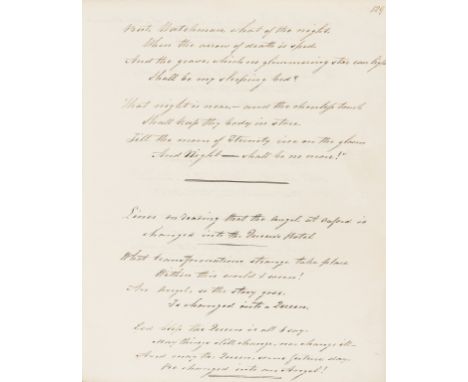 129
But, Watchman, what of the night,
When the arrow of death is sped
And the grave, which no glimmering star can light
Shall be my sleeping bed?
That night is near, and the cheerless tomb
Shall keep thy body in store
Till the morn of Eternity rise on the gloom
And Night — shall be no more!"
Lines on seeing that the Angel at Oxford is
changed into the Queen's Hotel
What transformations strange take place
Within this world I ween!
An Angel, so the story goes,
Is changed into a Queen.
God keep the Queen is all I say,
May things still change, nor change ill
And may the Queen, some future day
Be changed into an Angel!